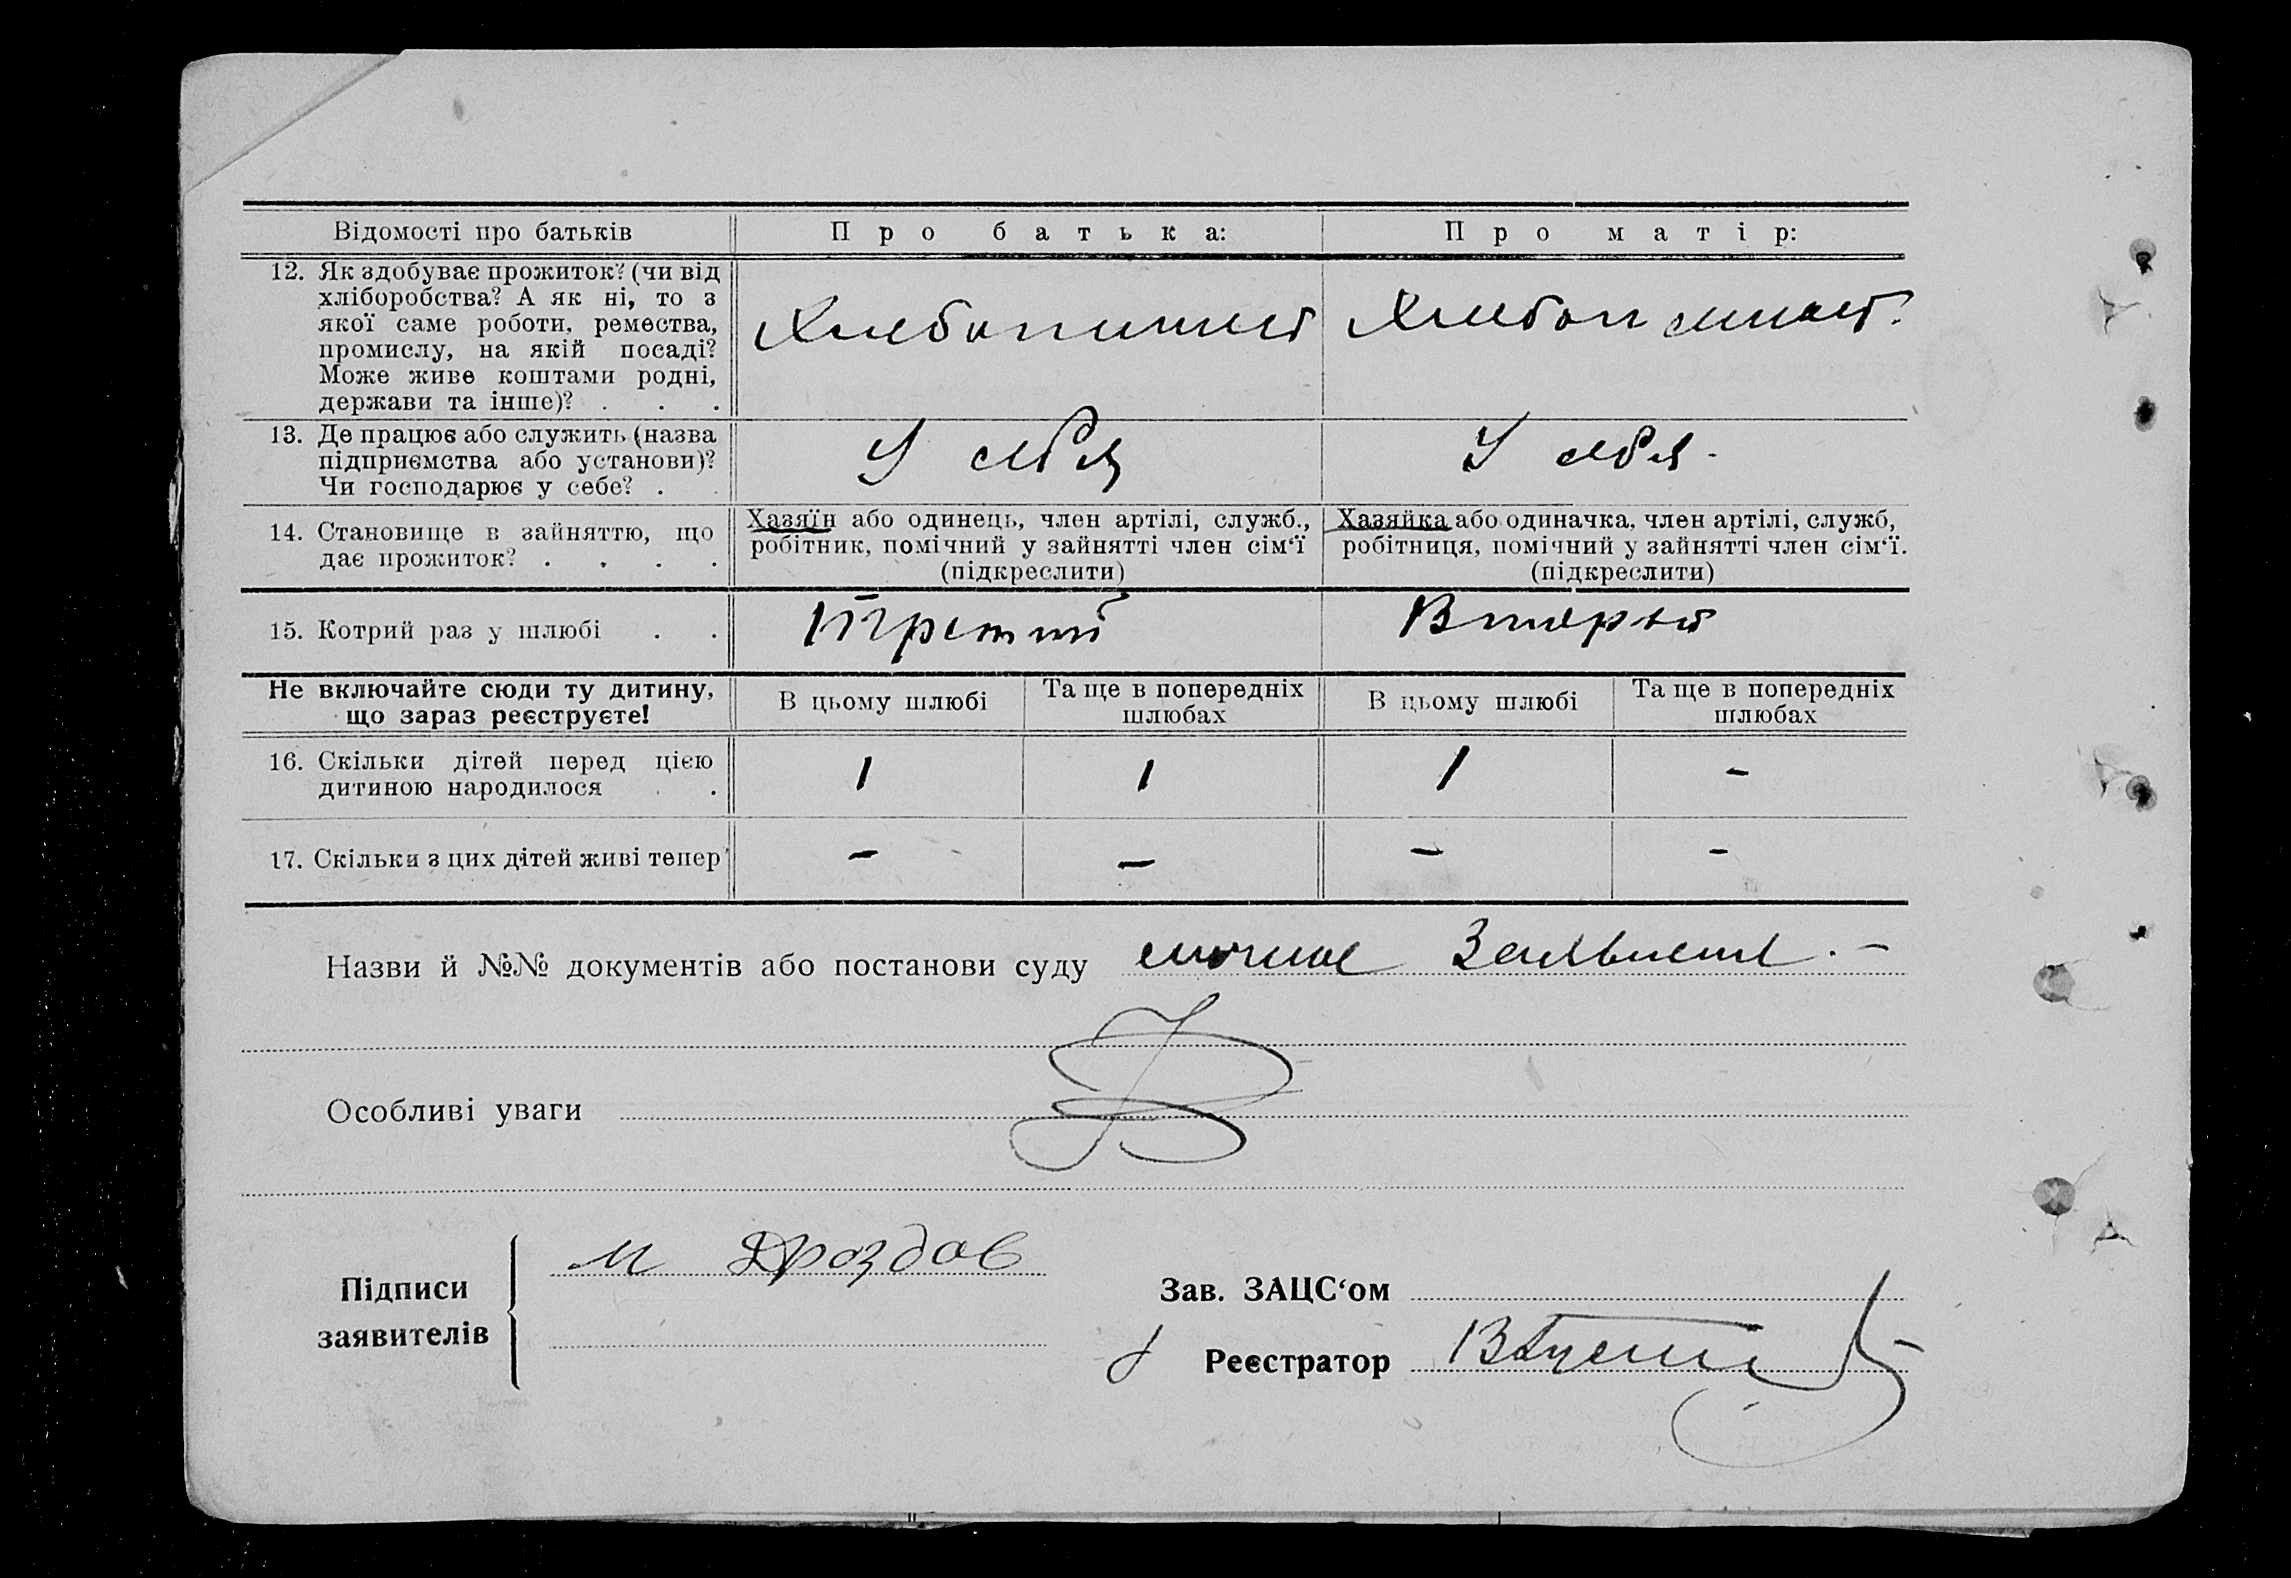 Відомості про батьків
Про батька:
Про матір:
12. Як здобуває прожиток? (чи від
хліборобства? А як ні, то з
якої саме роботи, ремества,
промислу, на якій посаді?
Може живе коштами родні,
держави та інше)? . . .
Хлебопашест
Хлебопашест.
13. Де працює або служить (назва
підприємства або установи)?
Чи господарює у себе? .
У себя
У себя.
14. Становище в зайняттю, що
дає прожиток? . . . .
Хазяїн або одинець, член артілі, служб.,
робітник, помічний у зайнятті член сім‘ї
(підкреслити)
Хазяйка або одиначка, член артілі, служб,
робітниця, помічний у зайнятті член сім‘ї.
(підкреслити)
15. Котрий раз у шлюбі . .
Третий
Вторый
Не включайте сюди ту дитину,
що зараз реєструєте!
В цьому шлюбі
Та ще в попередніх
шлюбах
В цьому шлюбі
Та ще в попередніх
шлюбах
16. Скільки дітей перед цією
дитиною народилося . .
1
1
1
-
17. Скільки з цих дітей живі тепер
-
-
-
-
Назви й №№ документів або постанови суду личное Заявлен. -
Особливі уваги
Підписи
заявителів
М Дроздов
Зав. ЗАЦС‘ом
Реєстратор